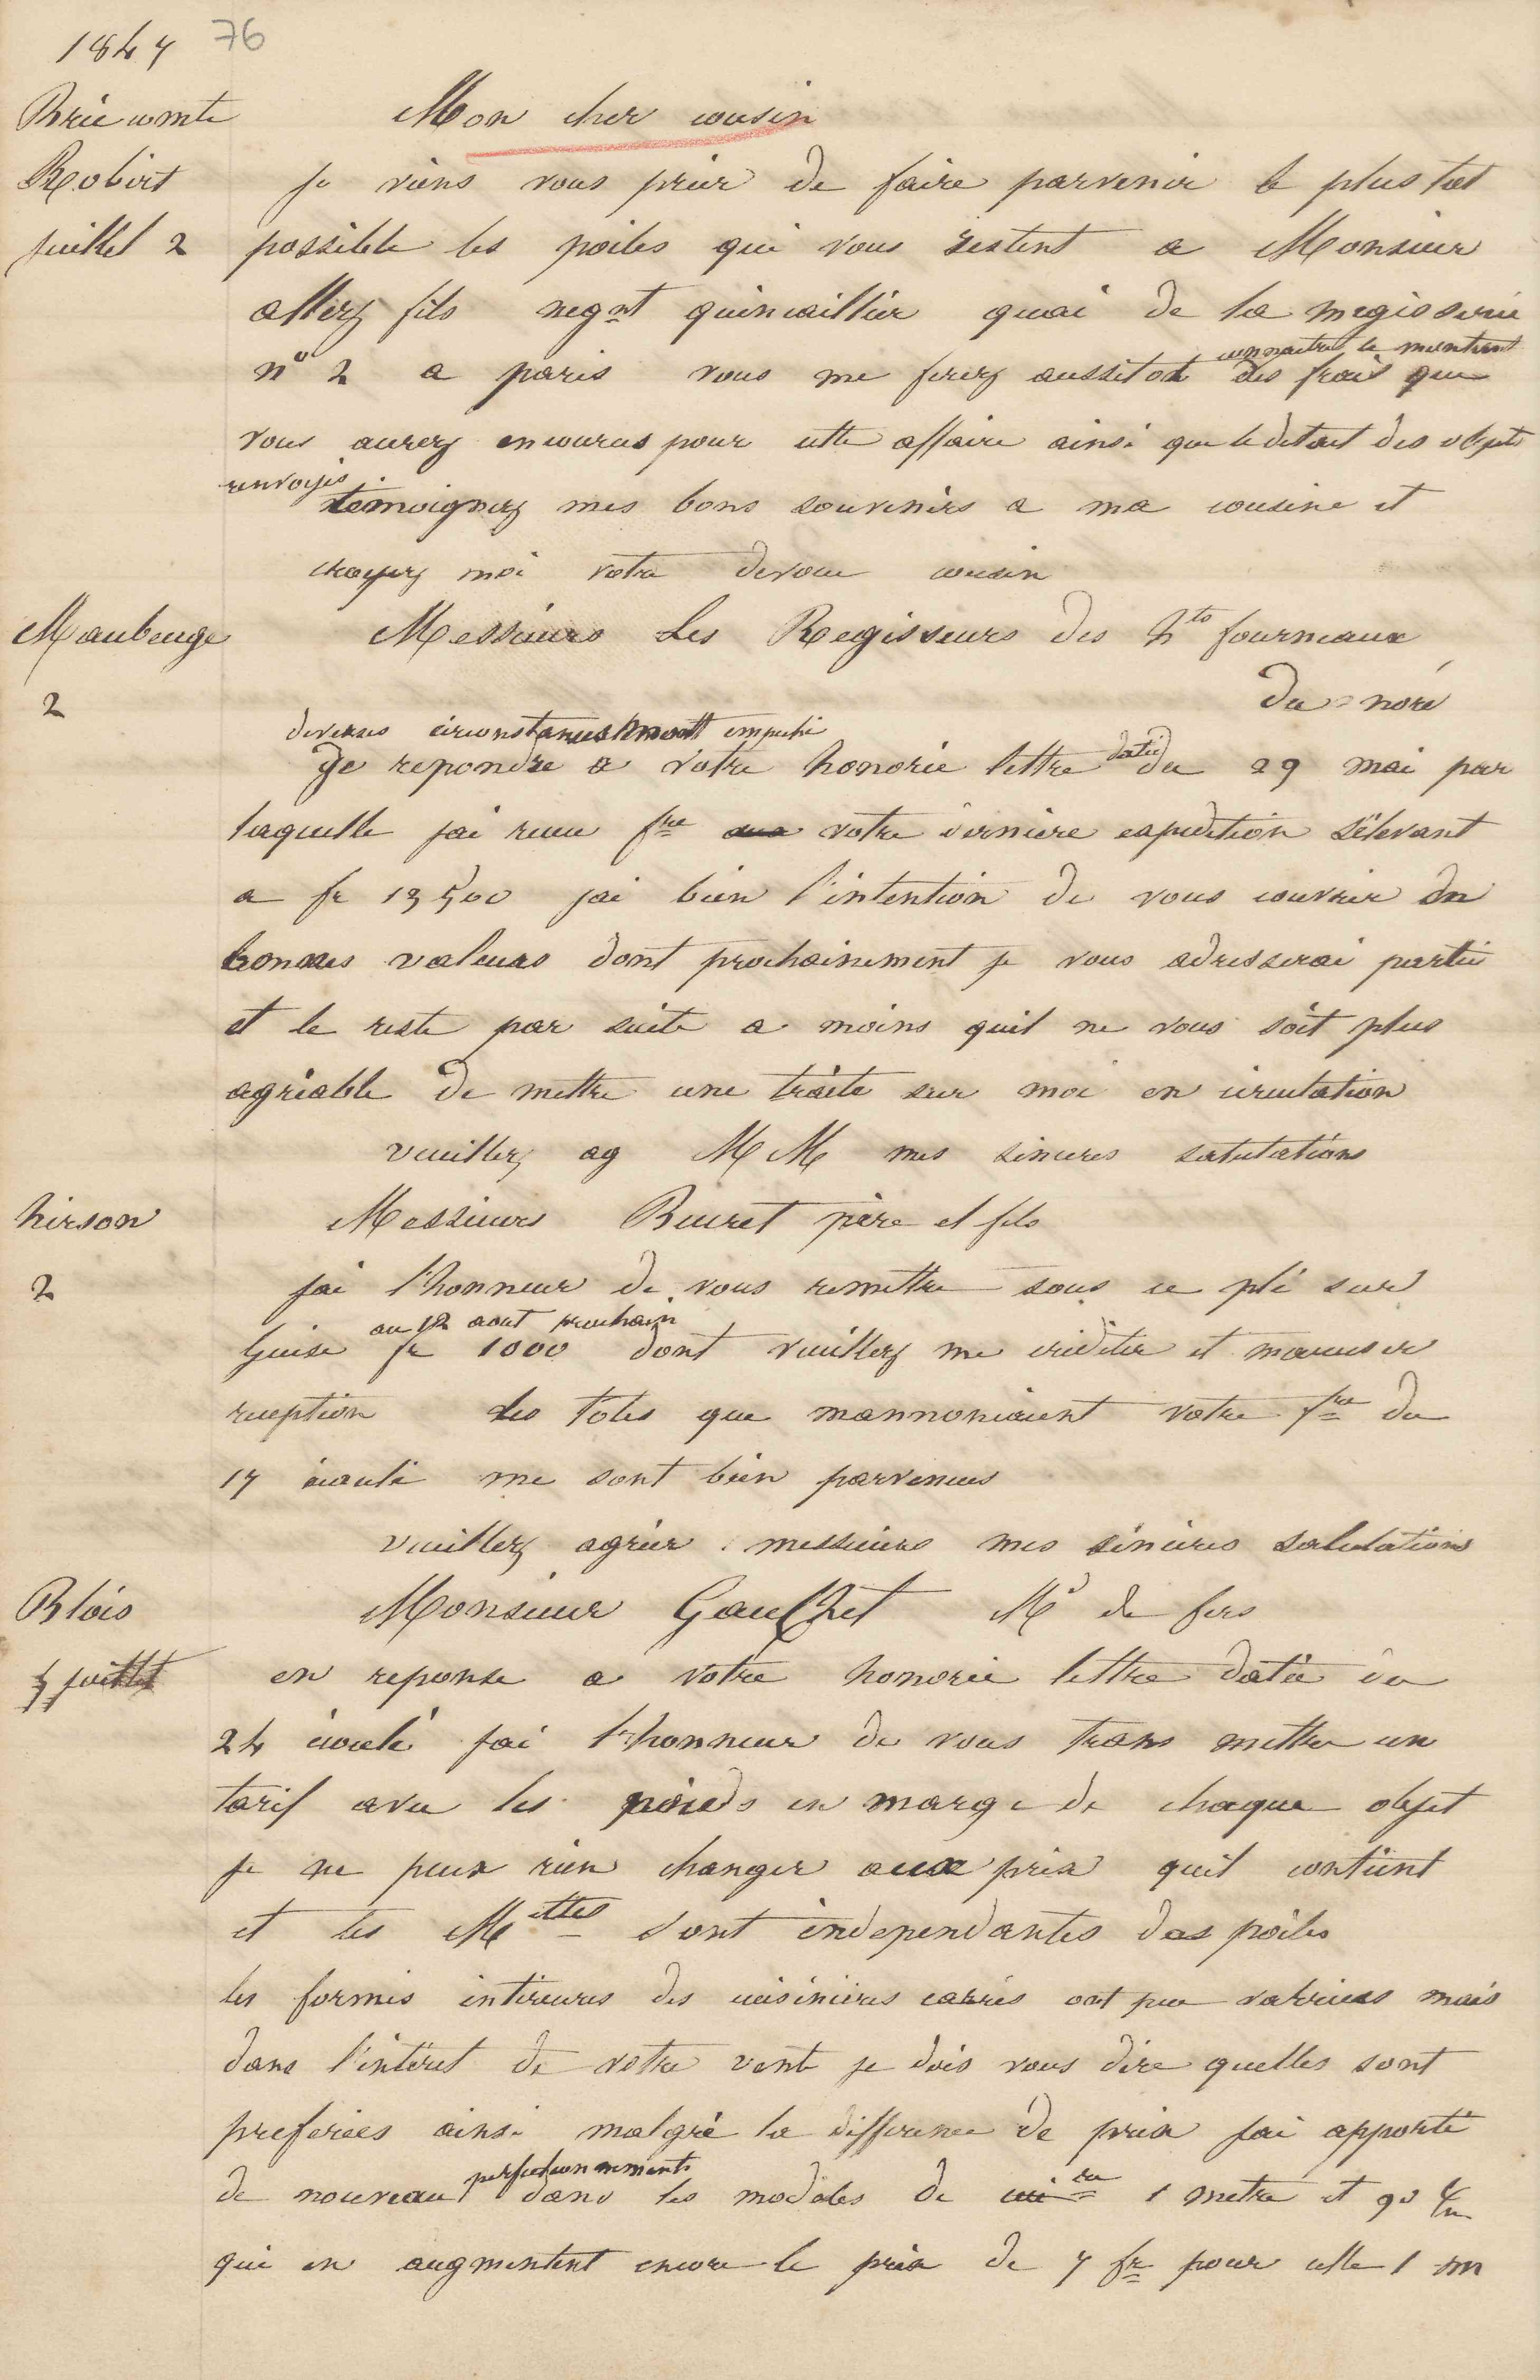 1847 76
Brie comte
Robert
juillet 2
Mon cher cousin
je viens vous prier de faire parvenir le plus tot
possible les poiles qui vous restent a Monsieur
allez fils negnt quincaillier quai de la megisserie
n° 2 a paris vous me ferez aussitot connaitre le montant des frais que
vous aurez encourus pour cette affaire ainsi que le detail des objets
renvoyés.
temoignez mes bons souvenirs a ma cousine et
croyez moi votre devoue cousin
Maubeuge
2
Messieurs Les Regisseurs des hts fourneaux
du nord
diverses circonstances mont empeché
de repondre a votre honorée lettre datée du 29 mai par
laquelle jai recu fre votre derniere expedition sélevant
a fr 13500 jai bien l'intention de vous couvrir en
bonnes valeurs dont prochainement je vous adresserai partie
et le reste par suite a moins quil ne vous soit plus
agréable de mettre une traite sur moi en circulation
veuillez ag MM mes sinceres salutations
hirson
2
Messieurs Beuret père et fils
jai l'honneur de vous remettre sous ce pli sur
Guise fr 1000 au 12 aout prochain dont veuillez me créditer et maccuser
reception Les Toles que mannoncaient votre fre du
17 écoulé me sont bien parvenues
veuillez agréer messieurs mes sincères salutations
Blois
4 juillet
Monsieur Gauchet Md de fers
en reponse a votre honorée lettre datée du
24 écoulé jai l'honneur de vous trans mettre un
tarif avec les poids en marge de chaque objet
je ne peux rien changer aux prix quil contient
et les Mettes sont independantes des poiles
les formes intérieures des cuisinières carrés ont peu variées mais
dans l'intéret de votre vente je dois vous dire quelles sont
preferées ainsi malgré la difference de prix jai apporté
de nouveau perfectionnements dans les modeles de 1 metre et 90 c/m
qui en augmentent encore le prix de 7 fr pour celle 1 m